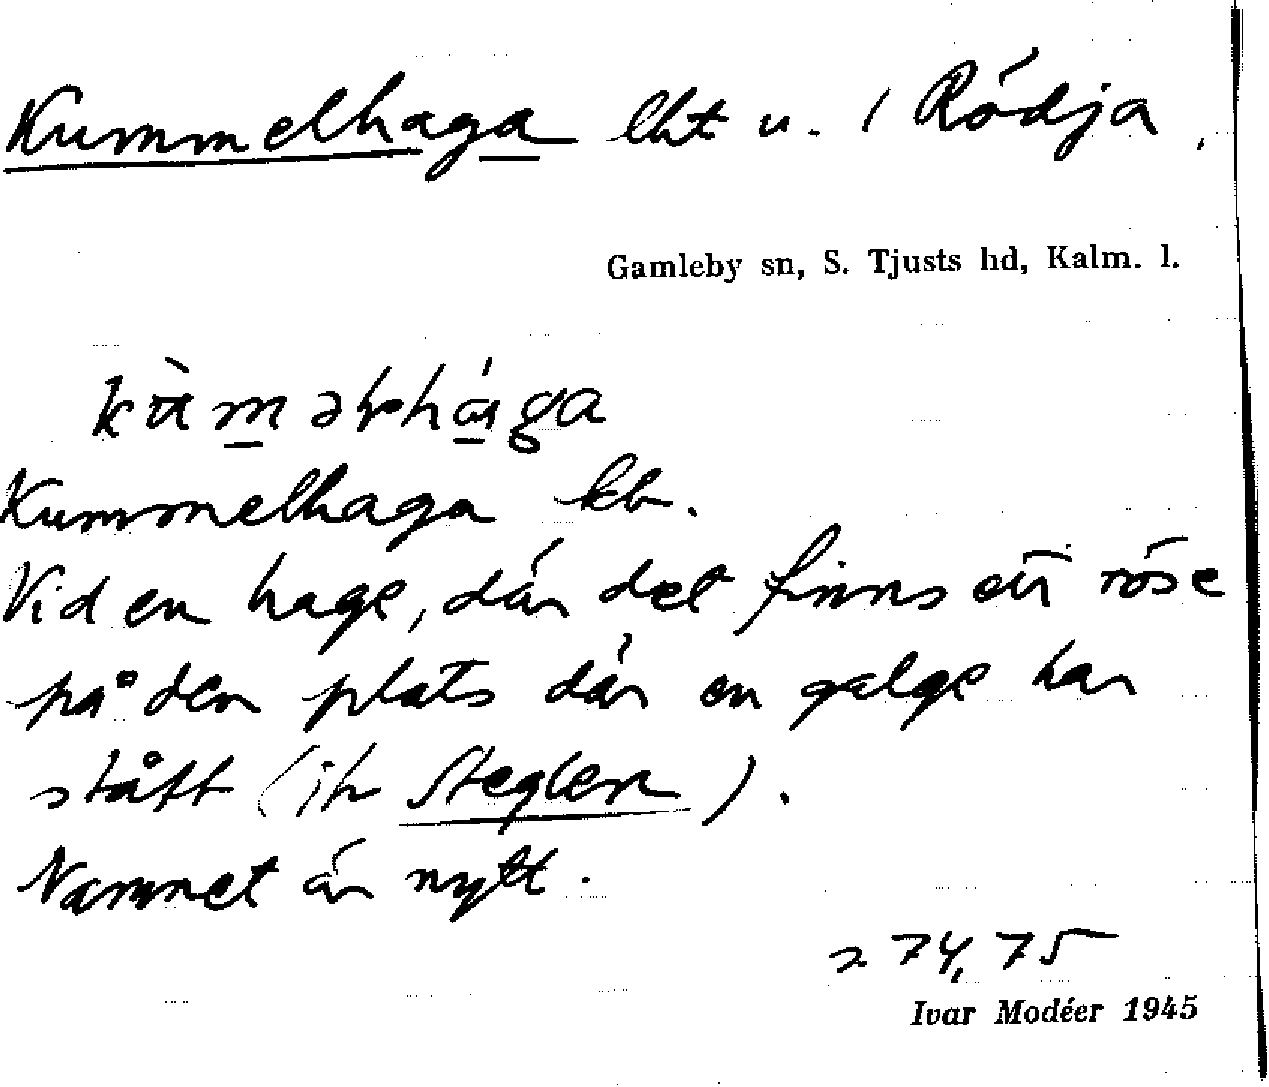 Kummelhaga lht u. / Rödja,
Gamleby sn, S. Tjusts hd, Kalm. l.
Kummelhaga kb.
Vid en hage, där det finns ett röse
på den plats där en galge har
stått (jfr Steglen).
Namnet är nytt.
274,75
Ivar Modéer 1945